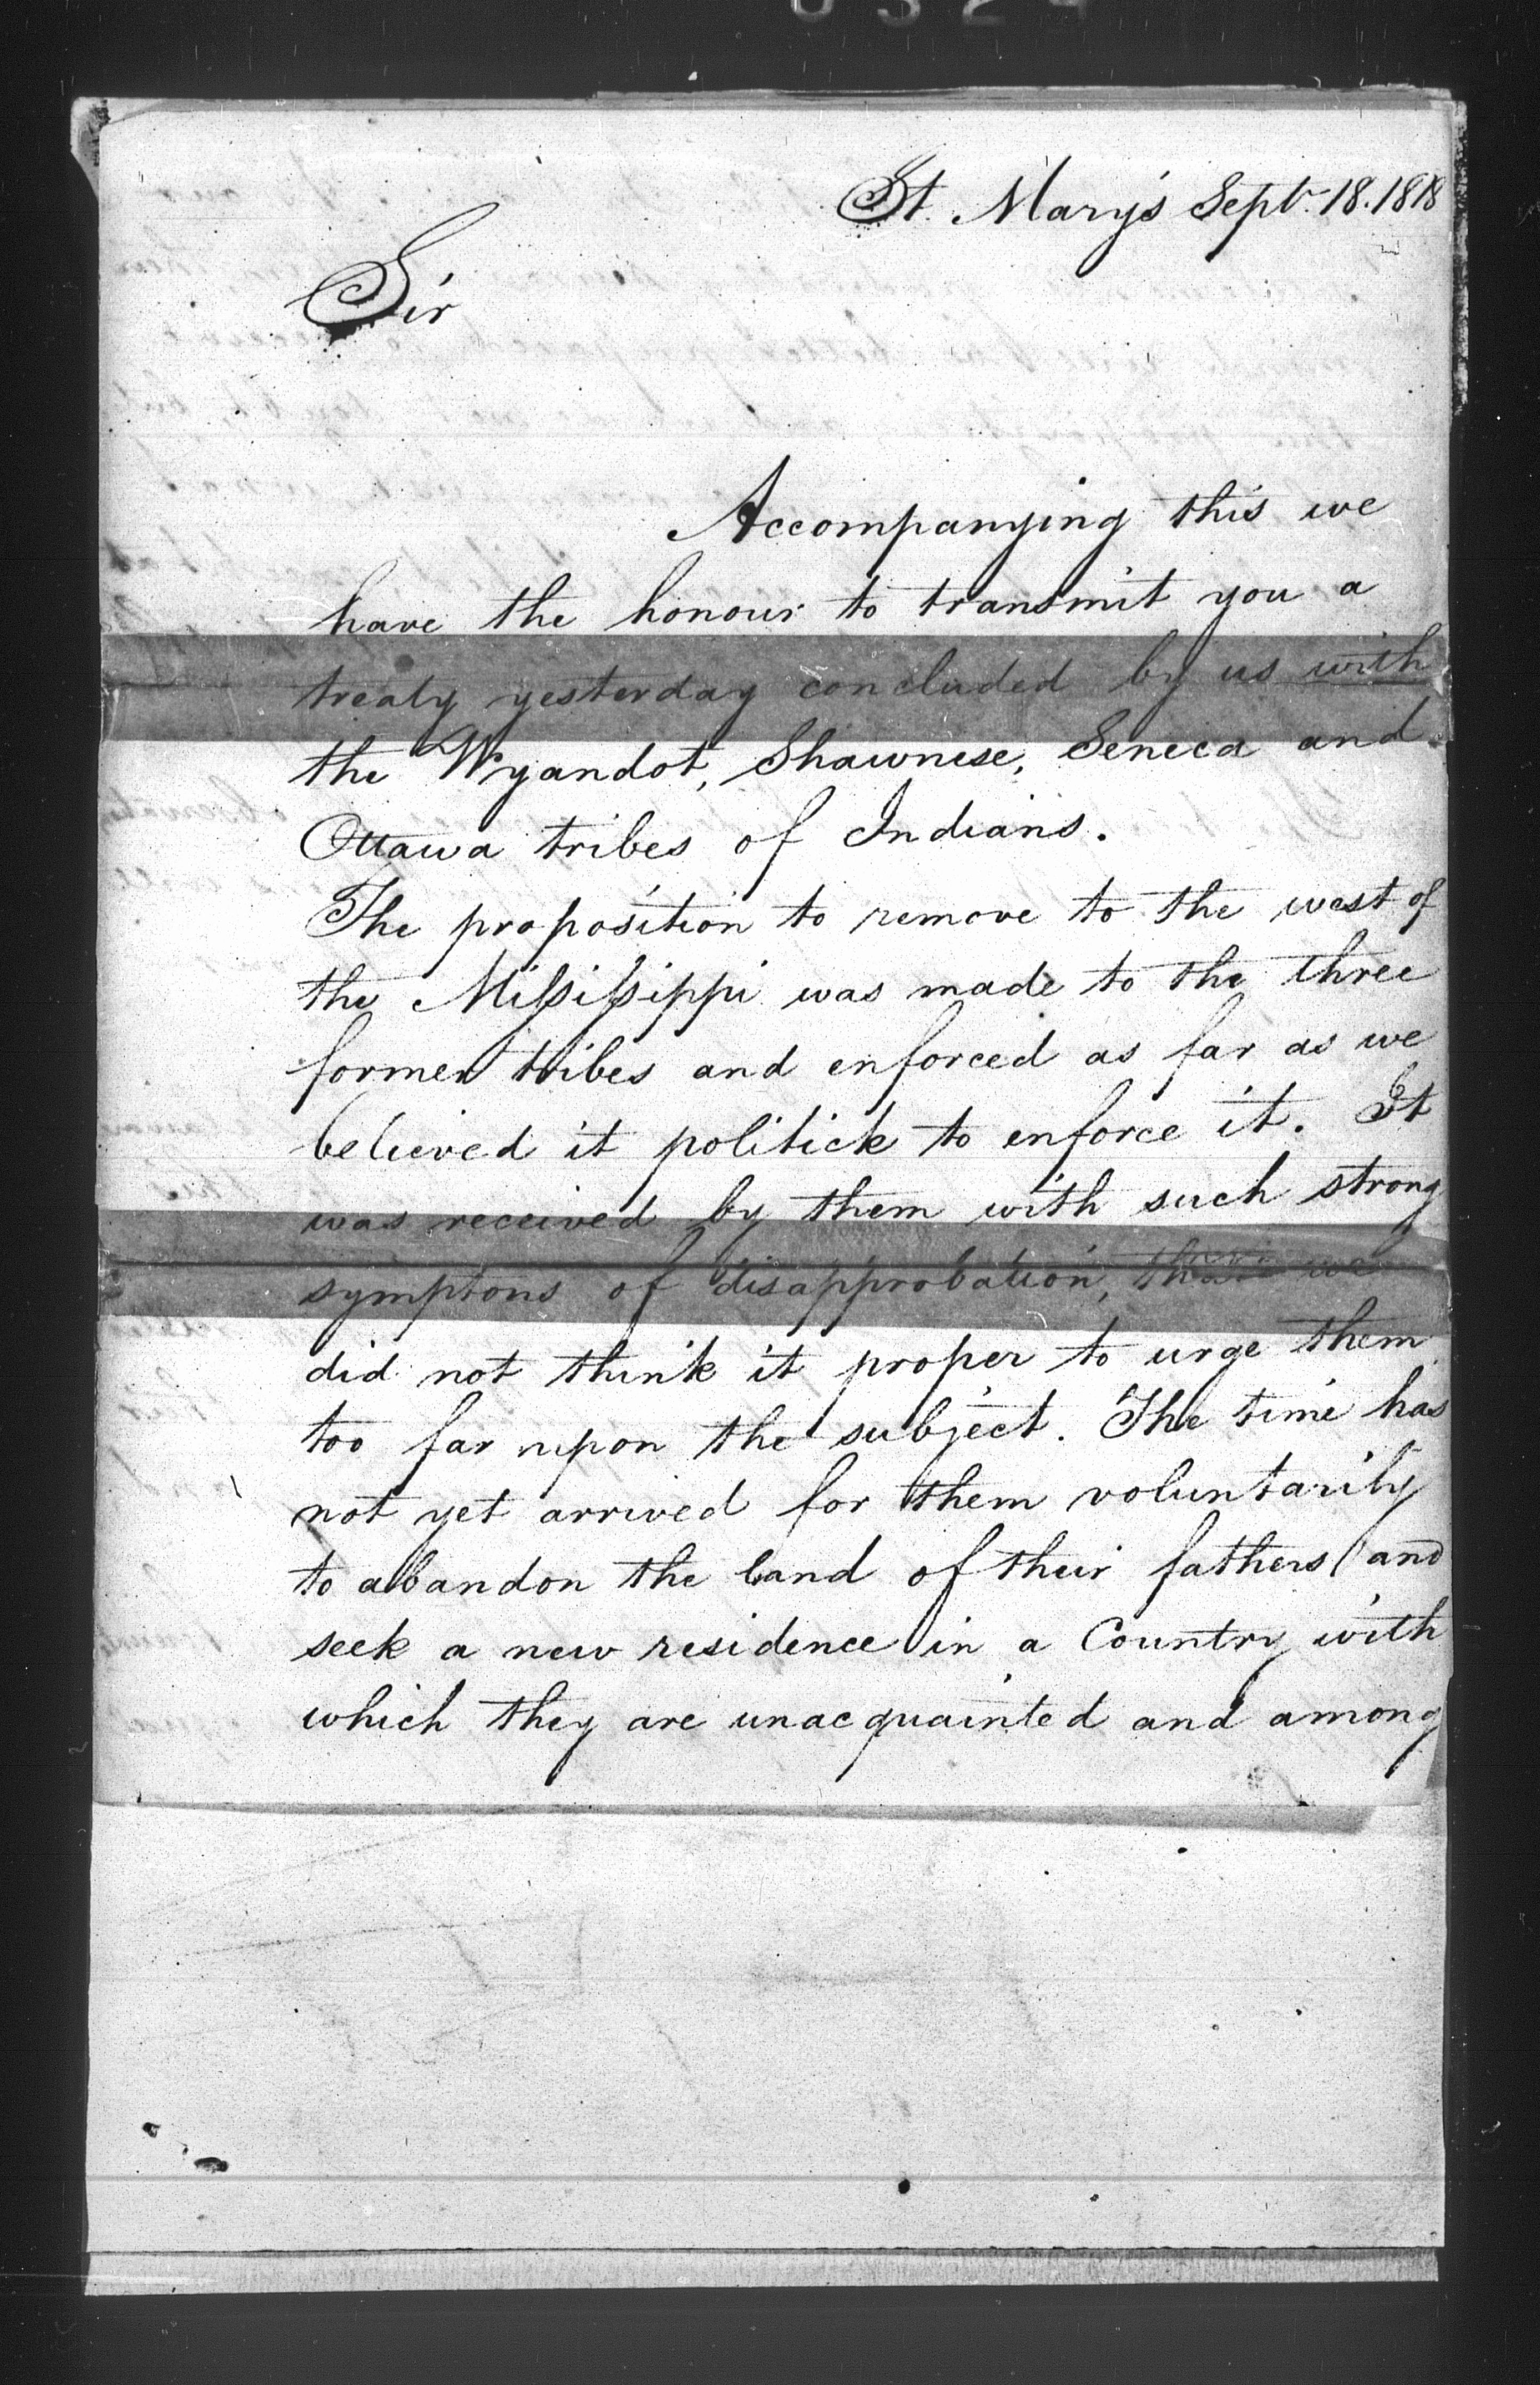 0324
St. Mary's Sept. 18. 1818
Sir
Accompanying this we
have the honour to transmit you a
treaty yesterday concluded by us with
the Wyandot, Shawnese, Seneca and
Ottawa tribes of Indians.
The proposition to remove to the west of
the Mississippi was made to the three
former tribes and enforced as far as we
believed it politick to enforce it. It
was received by them with such strong
symptons of disapprobation, that we
did not think it proper to urge them
too far upon the subject. The time has
not yet arrived for them voluntarily
to abandon the land of their fathers and
seek a new residence in a Country with
which they are unacquainted and among